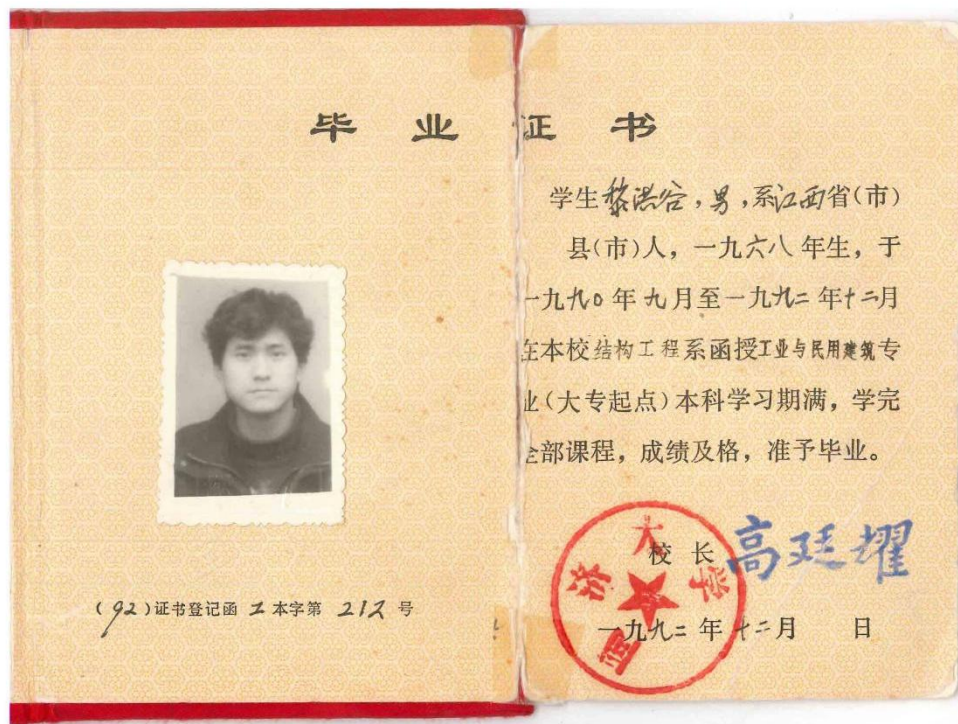 毕业证书
学生黎洪谷，男，系江西省(市)
县(市)人，一九六八年生，于
一九九〇年九月至一九九二年十二月
在本校结构工程系函授工业与民用建筑专
业(大专起点)本科学习期满，学完
全部课程，成绩及格，准予毕业。
校长 高廷耀
同济大学
一九九二年十二月 日
(92)证书登记函工本字第212号